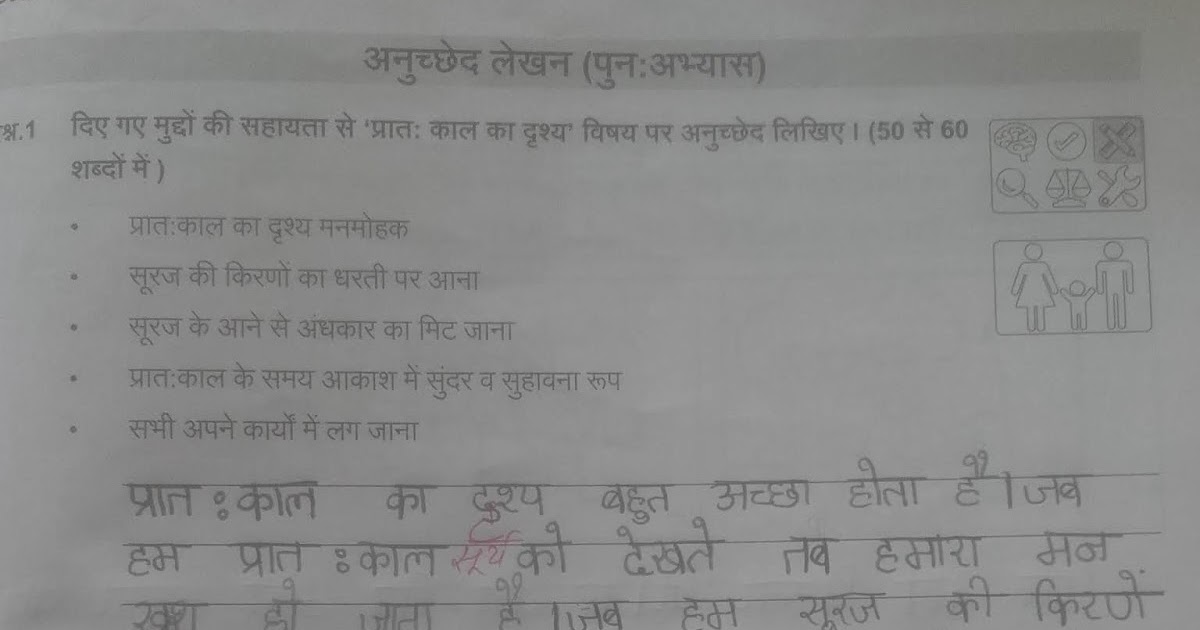 अनुच्छेद लेखन (पुन:अभ्यास)
श्न.1 दिए गए मुद्दों की सहायता से 'प्रात: काल का दृश्य' विषय पर अनुच्छेद लिखिए। (50 से 60
शब्दों में )
• प्रात:काल का दृश्य मनमोहक
• सूरज की किरणों का धरती पर आना
• सूरज के आने से अंधकार का मिट जाना
• प्रात:काल के समय आकाश में सुंदर व सुहावना रूप
• सभी अपने कार्यों में लग जाना
प्रात:काल का दुश्य बहुत अच्छा होता है।जब
हम प्रात:काल सूर्य को देखते तब हमारा मन
खुश हो जाता है।जब हम सूरज की किरणें